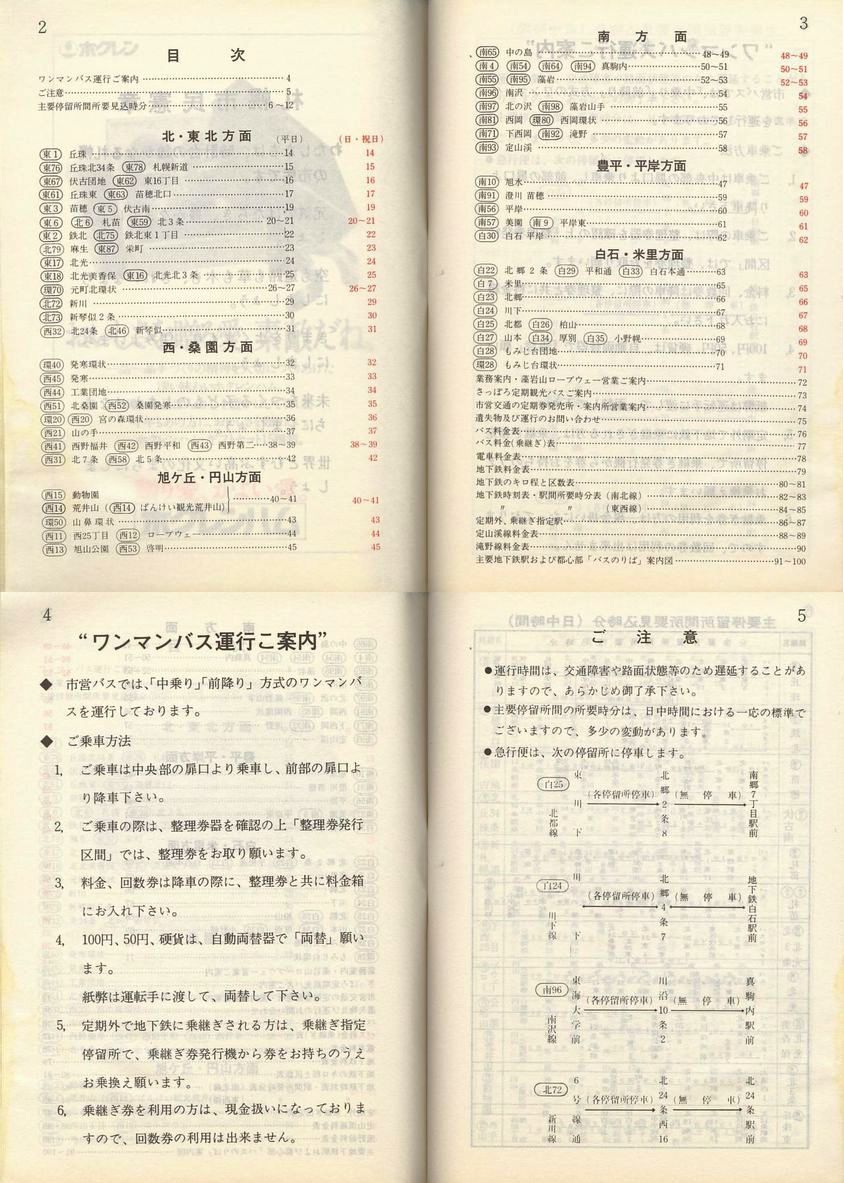 2
目次
ワンマンバス運行ご案内 4
ご注意 5
主要停留所間所要見込時分 6～12
北・東北方面 (平日) (日・祝日)
東1 丘珠 14 14
東76 丘珠北34条 東78 札幌新道 15 15
東67 伏古団地 東62 東16丁目 16 16
東61 丘珠東 東63 苗穂北口 17 17
東3 苗穂 東5 伏古南 19 19
東6 北6 札苗 東59 北3条 20～21 20～21
東2 鉄北 北75 鉄北東1丁目 22 22
北79 麻生 東87 栄町 23 23
東17 北光 24 24
東18 北光美香保 東16 北光北3条 25 25
環70 元町北環状 26～27 26～27
北72 新川 29 29
北73 新琴似2条 30 30
西32 北24条 北46 新琴似 31 31
西・桑園方面
環40 発寒環状 32 32
西45 発寒 33 33
西44 工業団地 34 34
西51 北桑園 西52 桑園発寒 35 35
環20 西20 宮の森環状 36 36
西21 山の手 37 37
西41 西野福井 西42 西野平和 西43 西野第二 38～39 38～39
西31 北7条 西58 北5条 42 42
旭ケ丘・円山方面
西15 動物園
西14 荒井山 (西14 ばんけい観光荒井山) 40～41 40～41
環50 山鼻環状 43 43
西11 西25丁目 西12 ロープウェー 44 44
西13 旭山公園 西53 啓明 45 45
3
南方面
南65 中の島 48～49 48～49
南4 南54 南64 南94 真駒内 50～51 50～51
南55 南95 藻岩 52～53 52～53
南96 南沢 54 54
南97 北の沢 南98 藻岩山手 55 55
南81 西岡 環80 西岡環状 56 56
南71 下西岡 南92 滝野 57 57
南93 定山渓 58 58
豊平・平岸方面
南10 旭水 47 47
南91 澄川苗穂 59 59
南56 平岸 60 60
南57 美園 南9 平岸東 61 61
白30 白石平岸 62 62
白石・米里方面
白22 北郷2条 白29 平和通 白33 白石本通 63 63
白7 米里 65 65
白23 北郷 66 66
白24 川下 67 67
白25 北都 白26 柏山 68 68
白27 山本 白34 厚別 白35 小野幌 69 69
白28 もみじ台団地 70 70
環28 もみじ台環状 71 71
業務案内・藻岩山ロープウェー営業ご案内 72
さっぽろ定期観光バスご案内 73
市営交通の定期券発売所・案内所営業案内 74
遺失物及び運行のお問い合わせ 75
バス料金表 76
バス料金(乗継ぎ)表 77
電車料金表 78
地下鉄料金表 79
地下鉄のキロ程と区数表 80～81
地下鉄時刻表・駅間所要時分表 (南北線) 82～83
〃 〃 (東西線) 84～85
定期外、乗継ぎ指定駅 86～87
定山渓線料金表 88～89
滝野線料金表 90
主要地下鉄駅および都心部「バスのりば」案内図 91～100
4
“ワンマンバス運行ご案内”
◆ 市営バスでは、「中乗り」「前降り」方式のワンマンバ
スを運行しております。
◆ ご乗車方法
1, ご乗車は中央部の扉口より乗車し、前部の扉口よ
り降車下さい。
2, ご乗車の際は、整理券器を確認の上「整理券発行
区間」では、整理券をお取り願います。
3, 料金、回数券は降車の際に、整理券と共に料金箱
にお入れ下さい。
4, 100円、50円、硬貨は、自動両替器で「両替」願い
ます。
紙弊は運転手に渡して、両替して下さい。
5, 定期外で地下鉄に乗継ぎされる方は、乗継ぎ指定
停留所で、乗継ぎ券発行機から券をお持ちのうえ
お乗換え願います。
6, 乗継ぎ券を利用の方は、現金扱いになっておりま
すので、回数券の利用は出来ません。
5
ご注意
●運行時間は、交通障害や路面状態等のため遅延することがあ
りますので、あらかじめ御了承下さい。
●主要停留所間の所要時分は、日中時間における一応の標準で
ございますので、多少の変動があります。
●急行便は、次の停留所に停車します。
白25 北都線 東川下 (各停留所停車) 北郷2条8 (無停車) 南郷7丁目駅前
白24 川下線 川下 (各停留所停車) 北郷4条7 (無停車) 地下鉄白石駅前
南96 南沢線 東海大学前 (各停留所停車) 川沿10条2 (無停車) 真駒内駅前
北72 新川線 6号線通 (各停留所停車) 北24条西16 (無停車) 北24条駅前